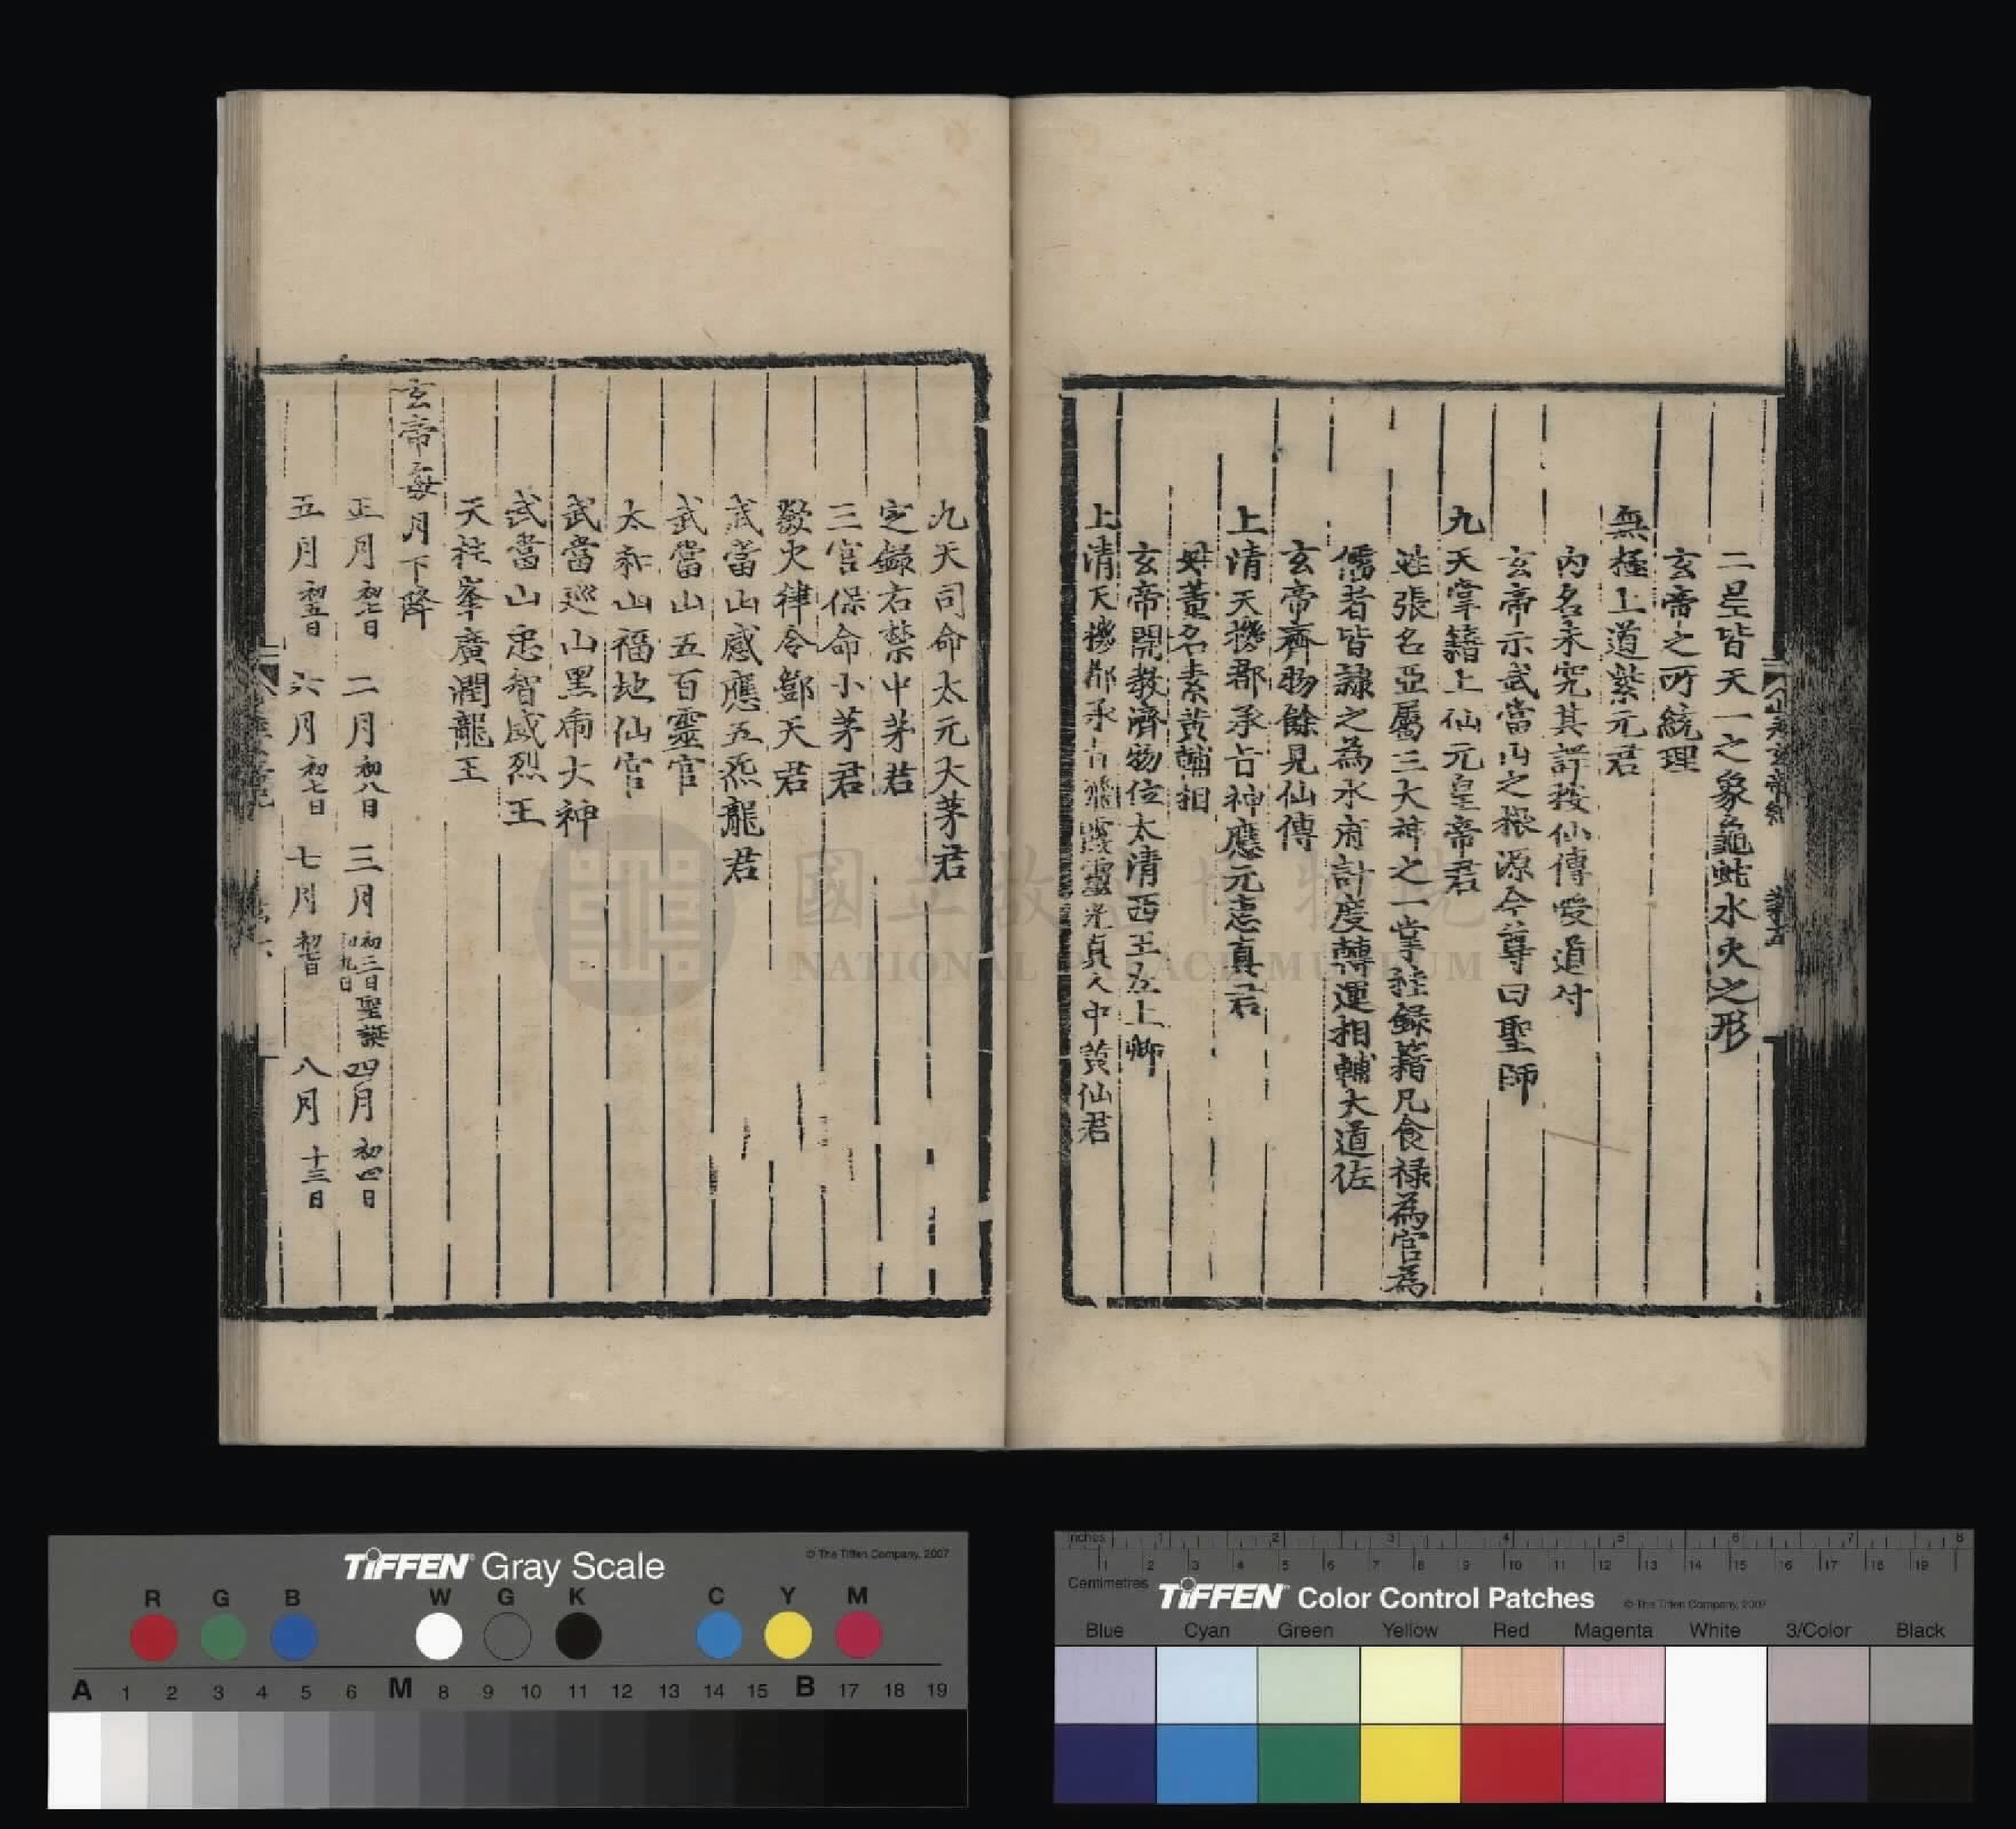 二星皆天一之象龜蛇水火之形
玄帝之所統理
無極上道紫元君
內名未究其詳按仙傳嘗道付
玄帝示武當山之根源今尊曰聖師
九天掌籍上仙元皇帝君
姓張名亞屬三大神之一掌註錄籍凡食祿為官為
儒者皆隷之為水府計度轉運相輔大道佐
玄帝齊物餘見仙傳
上清天機都承旨神應元惠真君
姓董名素黃輔相
玄帝開教濟物位太清西王左上卿
上清天機都承旨飛霞靈光真人中黃仙君
九天司命太元大茅君
定錄右禁中茅君
三官保命小茅君
欻火律令鄧天君
武當山感應五炁龍君
武當山五百靈官
太和山福地仙官
武當巡山黑虎大神
武當山忠智威烈王
天柱峯廣潤龍王
玄帝每月下降
正月初七日 二月初八日 三月初三日聖誕初九日 四月初四日
五月初五日 六月初七日 七月初七日 八月十三日
國立故宮博物院
NATIONAL PALACE MUSEUM
TIFFEN Gray Scale
© The Tiffen Company, 2007
R G B W G K C Y M
A 1 2 3 4 5 6 M 8 9 10 11 12 13 14 15 B 17 18 19
Inches 1 2 3 4 5 6 7 8
1 2 3 4 5 6 7 8 9 10 11 12 13 14 15 16 17 18 19
Centimetres
TIFFEN Color Control Patches
© The Tiffen Company, 2007
Blue Cyan Green Yellow Red Magenta White 3/Color Black